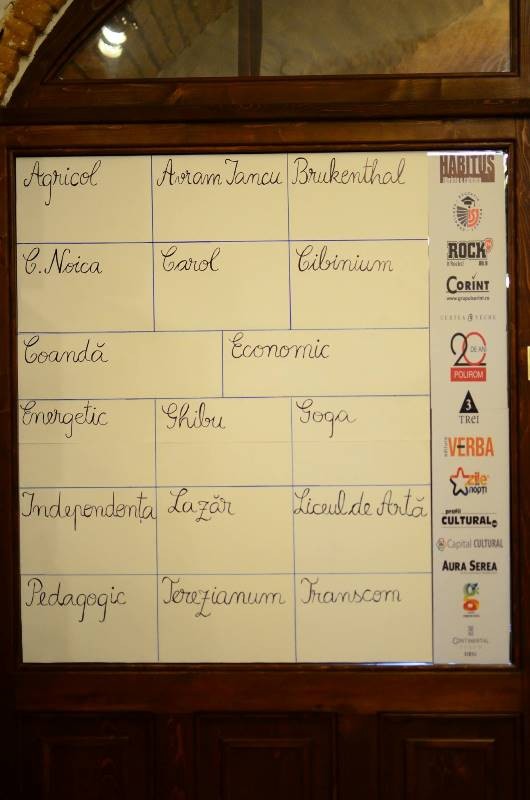 Agricol
Avram Iancu
Brukenthal
C. Noica
Carol
Cibinium
Coandă
Economic
Energetic
Ghibu
Goga
Independența
Lazăr
Liceul de Artă
Pedagogic
Terezianum
Transcom
HABITUS
ROCK
CORINT
www.grupulcorint.ro
CURTEA VECHE
20
DE ANI
POLIROM
3
TREI
editura
VERBA
zile
nopți
profil
CULTURAL
Capital CULTURAL
AURA SEREA
CONTINENTAL
FORUM
SIBIU